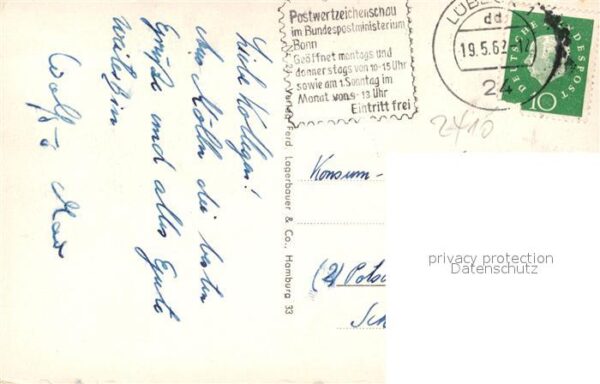 Postwertzeichenschau
im Bundespostministerium
Bonn
Geöffnet montags und
donnerstags von 10-15 Uhr
sowie am 1. Sonntag im
Monat von 9-13 Uhr
Eintritt frei
LÜBECK
dd
19.5.62
24
DEUTSCHE BUNDESPOST
10
2410
Liebe Kollegen!
Aus Mölln die besten
Grüße und alles Gute
weiterhin
Verlag Ferd. Lagerbauer & Co., Hamburg 33
Konsum-
(2) Potsd
Sch
privacy protection
Datenschutz